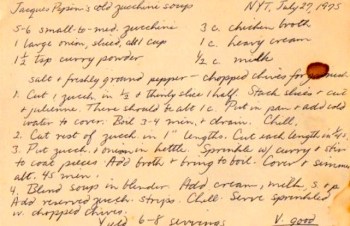 Jacques Pepin's cold zucchini soup NYT, July 27, 1975
5-6 small-to-med. zucchini 3 c. chicken broth
1 large onion, sliced, abt 1 cup 1 c. heavy cream
1½ tsp curry powder ½ c. milk
salt + freshly ground pepper - chopped chives for
1. Cut 1 zucch. in ½ + thinly slice 1 half. Stack slices + cut
+ julienne. There should be abt 1 c. Put in pan + add cold
water to cover. Boil 3-4 min. + drain. Chill.
2. Cut rest of zucch in 1" lengths. Cut each length in
3. Put zucch + onion in kettle. Sprinkle w/ curry + stir
to coat pieces. Add broth + bring to boil. Cover + simmer
abt. 45 min.
4. Blend soup in blender. Add cream, milk, s. + p.
Add reserved zucch. strips. Chill. Serve sprinkled
w. chopped chives.
Yield 6-8 servings V. good